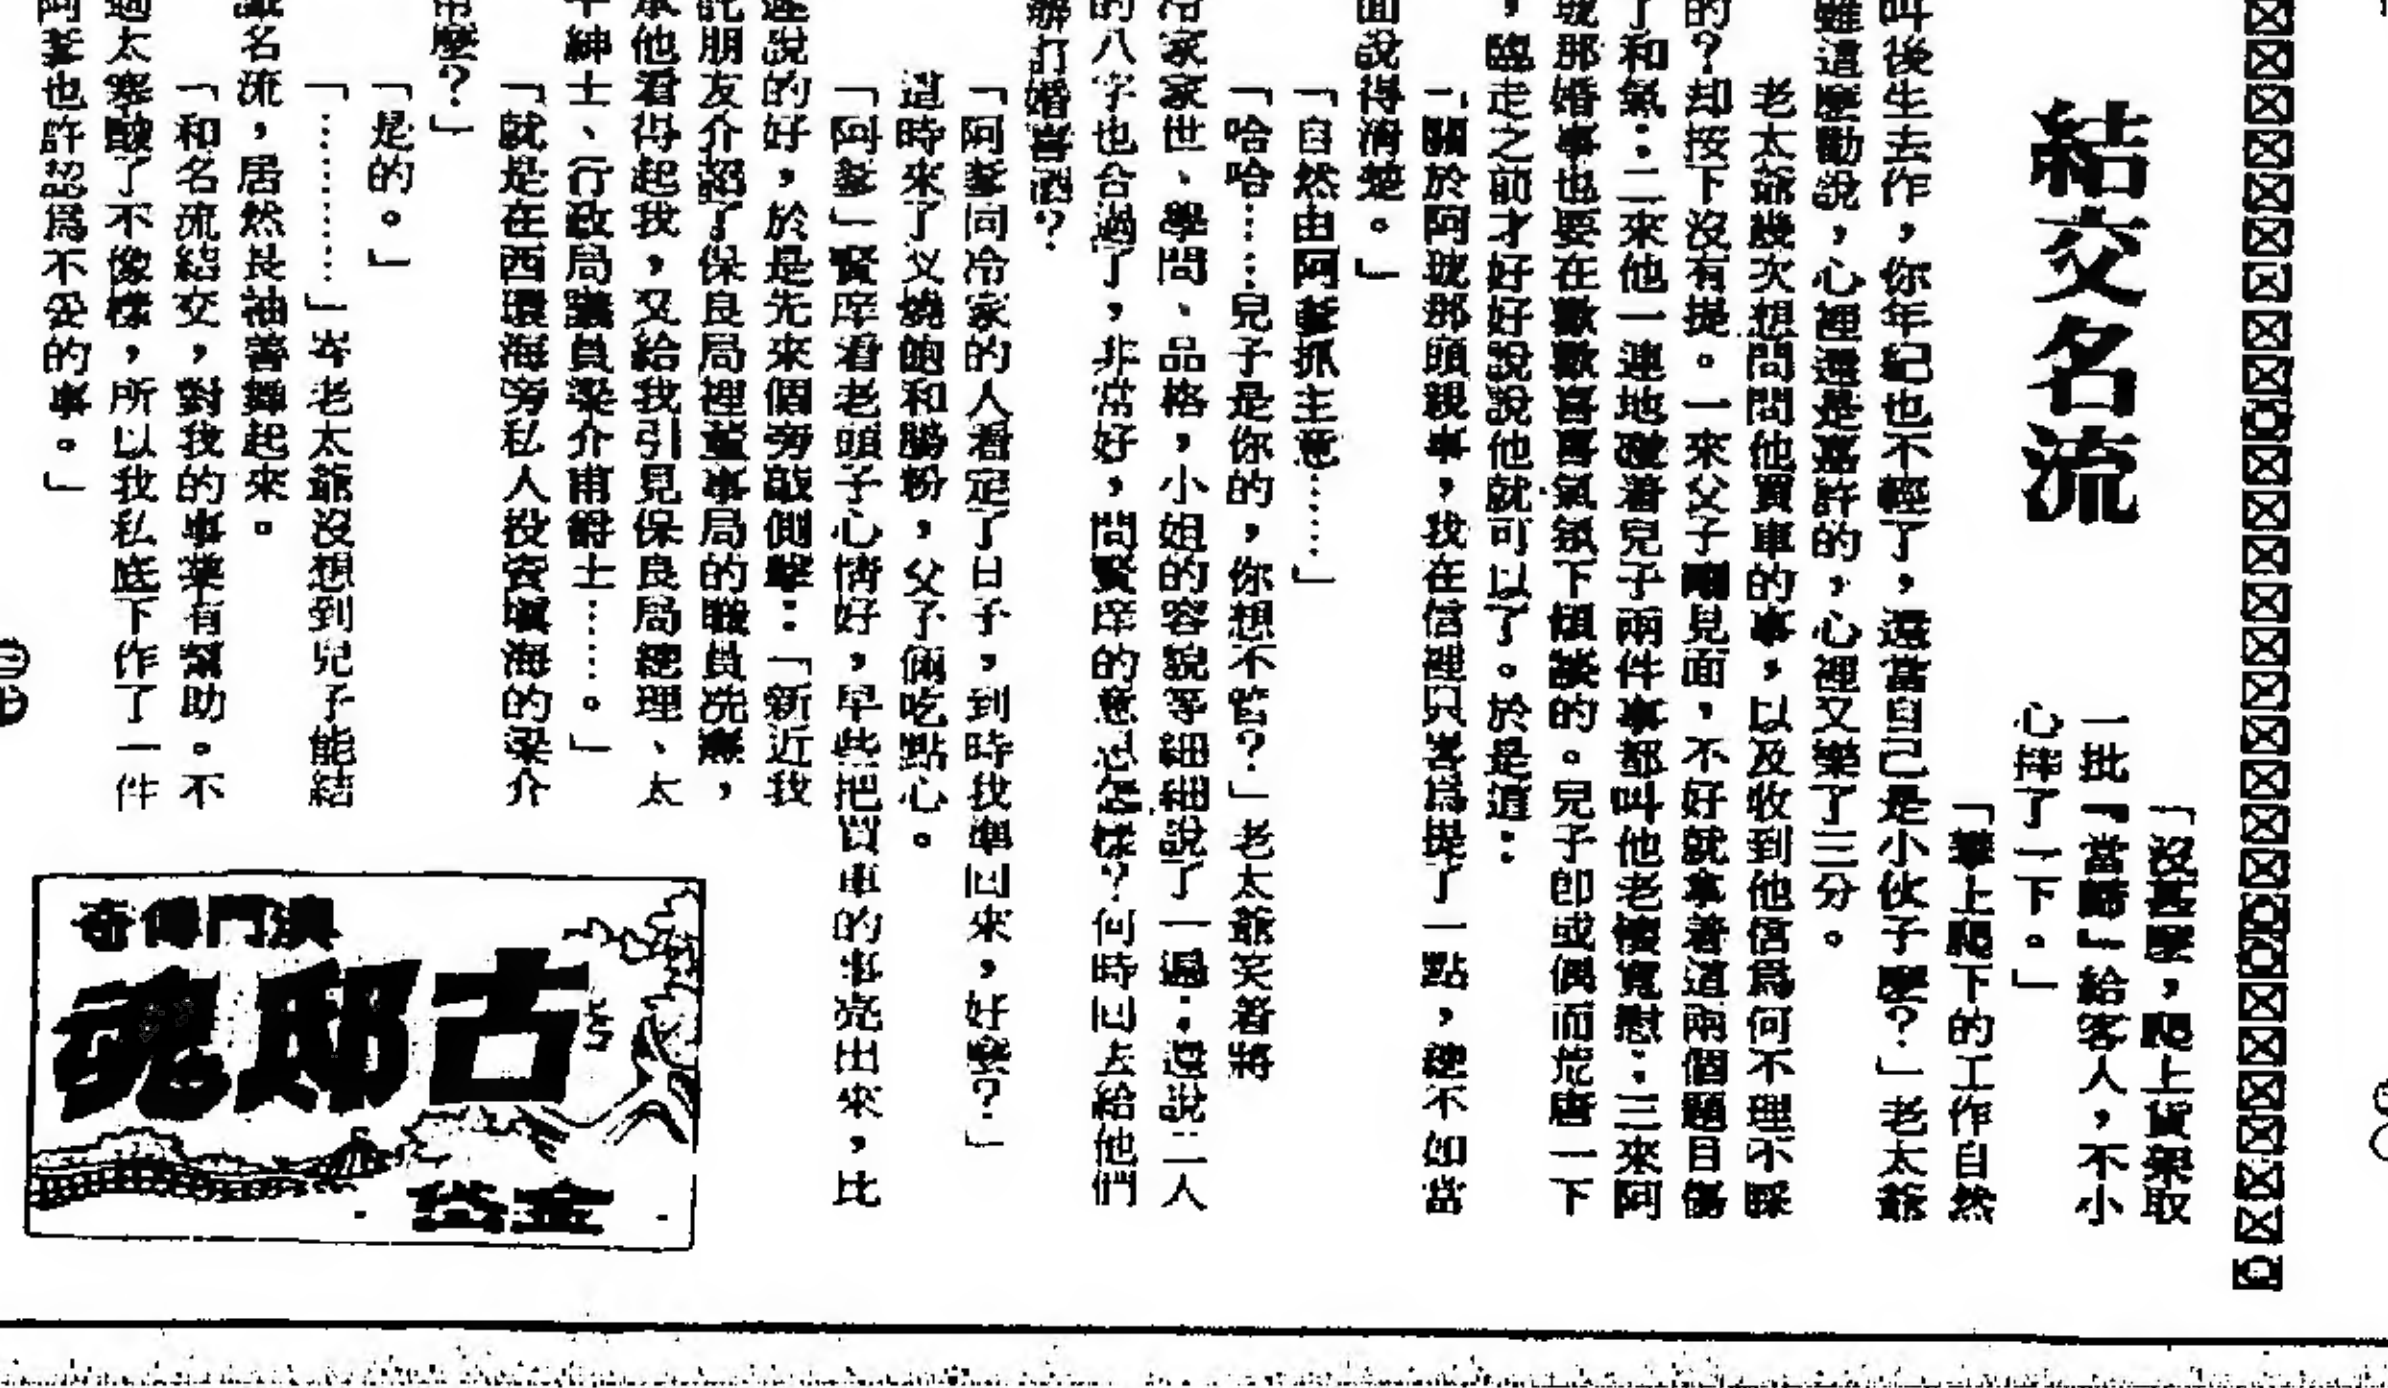 結交名流
「沒甚麼，爬上貨架取
一批『當歸』給客人，不小
心摔了一下。」
「攀上爬下的工作自然
叫後生去作，你年紀也不輕了，還當自己是小伙子麼？」老太爺
雖這麼勸說，心裡還是嘉許的，心裡又樂了三分。
老太爺幾次想問問他買車的事，以及收到他信爲何不理不睬
的？却按下沒有提。一來父子剛見面，不好就拿着這兩個題目傷
了和氣；二來他一連地碰着兒子兩件事都叫他老懷寬慰；三來阿
琥那婚事也要在歡歡喜喜氣氛下傾談的。兒子卽或偶而荒唐一下
，臨走之前才好好說說他就可以了。於是道：
「關於阿琥那頭親事，我在信裡只畧爲提了一點，總不如當
面說得清楚。」
「自然由阿爹抓主意……」
「哈哈……兒子是你的，你想不管？」老太爺笑着將
冷家家世、學問、品格，小姐的容貌詳細細說了一遍，還說二人
的八字也合過了，非常好，問賢庠的意思怎樣？何時回去給他們
辦訂婚喜酒？
「阿爹同冷家的人看定了日子，到時我準回來，好嗎？」
這時來了义燒飽和腸粉，父子倆吃點心。
「阿爹」賢庠看老頭子心情好，早些把買車的事亮出來，比
遲說的好，於是先來個旁敲側擊：「新近我
託朋友介紹了保良局裡董事局的職員冼應，
承他看得起我，又給我引見保良局總理、太
平紳士、行政局議員梁介甫爵士……。」
「就是在西環海旁私人投資塡海的梁介
甫麼？」
「是的。」
「…………」岑老太爺沒想到兒子能結
識名流，居然長袖善舞起來。
「和名流結交，對我的事業有幫助。不
過太寒酸了不像樣，所以我私底下作了一件
阿爹也許認爲不妥的事。」
澳門傳奇
古邸魂
金岱